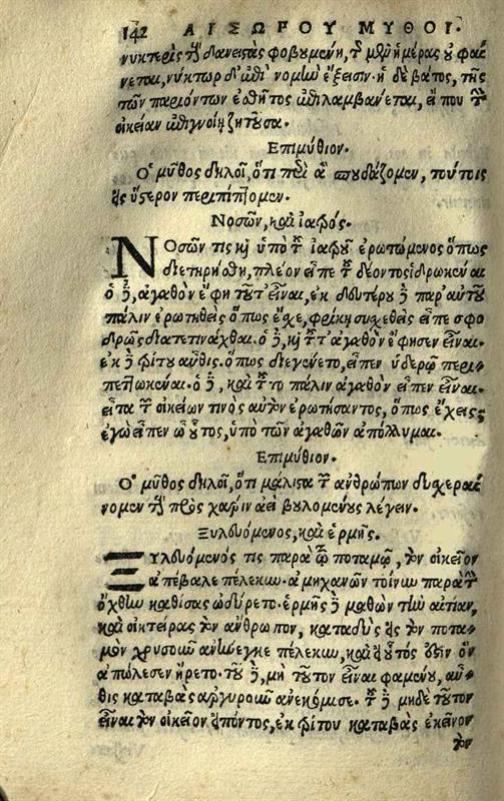 142 ΑΙΣΩΠΟΥ ΜΥΘΟΙ.
νυκτερὶς τοὺς δανειστὰς φοβουμένη, τὸ μὲν ἡμέρας οὐ φαί
νεται, νύκτωρ δ' ἐπὶ νομὴν ἔξεισιν. ἡ δὲ βάτος, τῆς
τῶν παριόντων ἐσθῆτος ἐπιλαμβάνεται, εἴ που τὴν
οἰκείαν ἐπιγνοίη ζητοῦσα.
Ἐπιμύθιον.
Ὁ μῦθος δηλοῖ, ὅτι περὶ ἃ σπουδάζομεν, τούτοις
εἰς ὕστερον περιπίπτομεν.
Νοσῶν, καὶ ἰατρός.
ΝΟσῶν τις καὶ ὑπὸ τοῦ ἰατροῦ ἐρωτώμενος ὅπως
διετηρήθη, πλέον εἶπε τοῦ δέοντος ἱδρωκέναι
ὁ δὲ, ἀγαθὸν ἔφη τοῦτ' εἶναι, ἐκ δευτέρου δὲ παρ' αὐτοῦ
πάλιν ἐρωτηθεὶς ὅπως ἔχε, φρίκῃ συχεθεὶς εἶπε σφο
δρῶς διατετινάχθαι. ὁ δὲ, καὶ τοῦτ' ἀγαθὸν ἔφησεν εἶναι.
ἐκ δὲ τρίτου αὖθις. ὅπως διεγένετο, εἶπεν ὑδέρῳ περι
πεπτωκέναι. ὁ δὲ, καὶ τοῦτο πάλιν ἀγαθὸν εἶπεν εἶναι.
εἶτα τῶν οἰκείων τινὸς αὐτὸν ἐρωτήσαντος, ὅπως ἔχεις;
ἐγὼ εἶπεν ὦ οὗτος, ὑπὸ τῶν ἀγαθῶν ἀπόλλυμαι.
Ἐπιμύθιον.
Ὁ μῦθος δηλοῖ, ὅτι μάλιστα τῶν ἀνθρώπων δυχεραί
νομεν τοὺς πρὸς χάριν ἀεὶ βουλομένους λέγειν.
Ξυλευόμενος, καὶ ἑρμῆς.
Ξυλευόμενός τις παρὰ τῷ ποταμῷ, τὸν οἰκεῖον
ἀπέβαλε πέλεκυν. ἀμηχανῶν τοίνυν παρὰ τὴν
ὄχθην καθίσας ὠδύρετο. ἑρμῆς δὲ μαθὼν τὴν αἰτίαν,
καὶ οἰκτείρας τὸν ἄνθρωπον, καταδὺς εἰς τὸν ποτα
μὸν χρυσοῦν ἀνήνεγκε πέλεκυν, καὶ εἰ οὗτός ἐστιν ὃν
ἀπώλεσεν ἤρετο. τοῦ δὲ, μὴ τοῦτον εἶναι φαμένου, αὖ
θις καταβὰς ἀργυροῦν ἀνεκόμισε. τοῦ δὲ μηδὲ τοῦτον
εἶναι τὸν οἰκεῖον εἰπόντος, ἐκ τρίτου καταβὰς ἐκεῖνον
τὸν